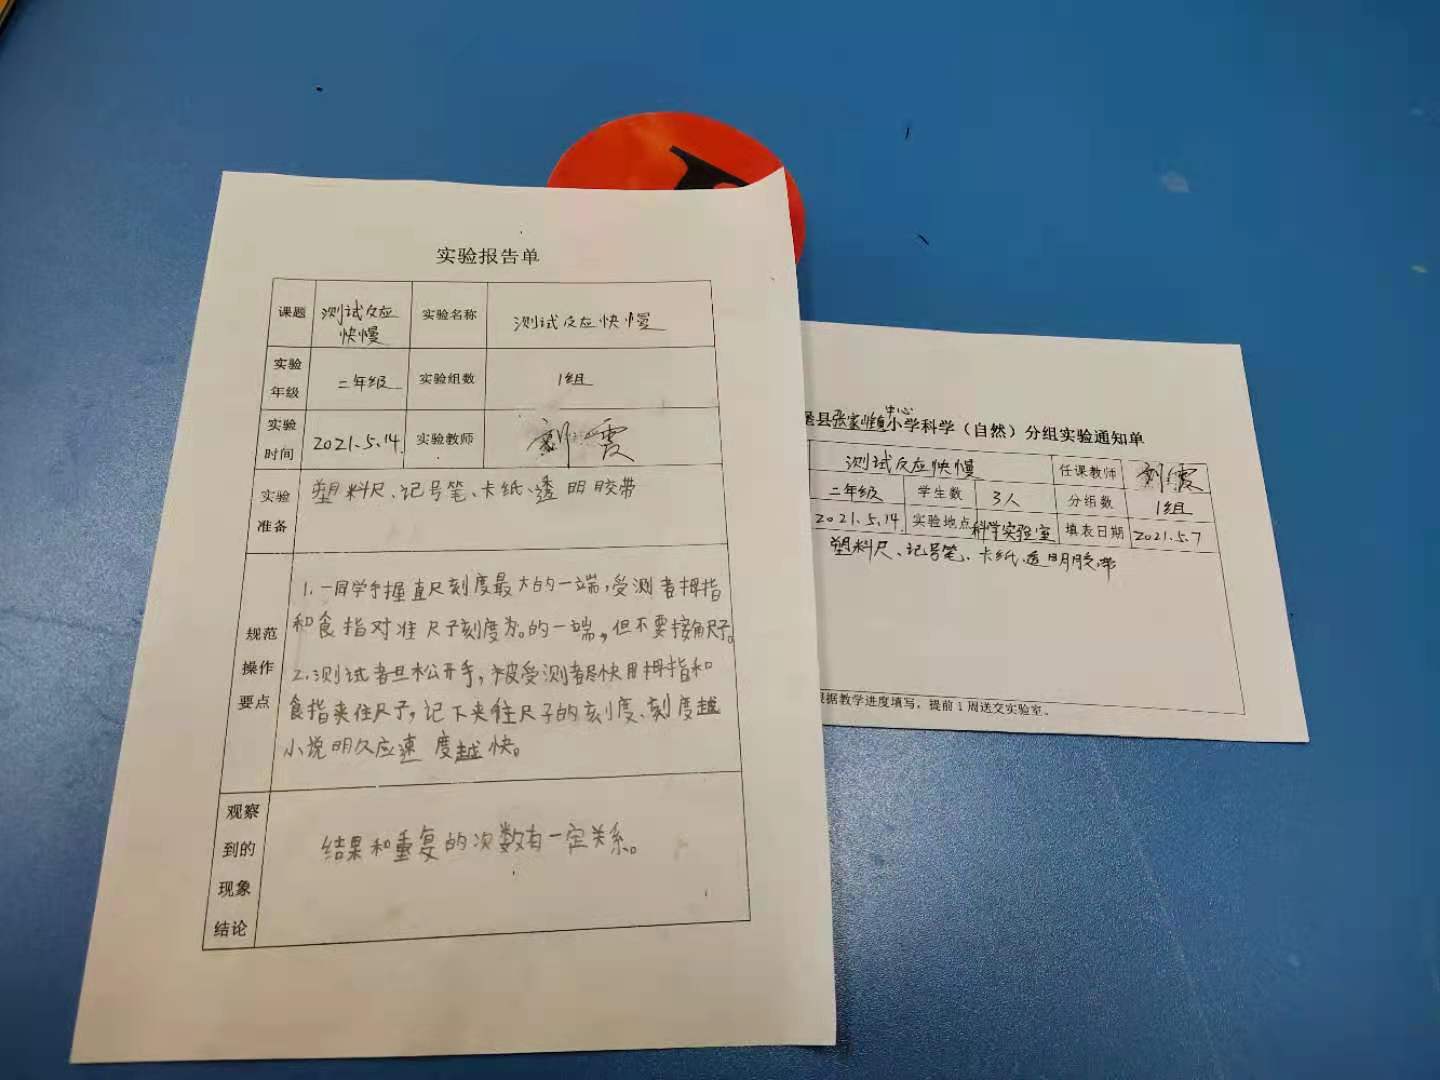 实验报告单
课题 测试反应快慢 实验名称 测试反应快慢
实验年级 二年级 实验组数 1组
实验时间 2021.5.14. 实验教师 刘霞
实验准备 塑料尺、记号笔、卡纸、透明胶带
规范操作要点
1.一同学手握直尺刻度最大的一端,受测者拇指
和食指对准尺子刻度为0的一端,但不要接角尺子。
2.测试者旦松开手,被受测者尽快用拇指和
食指夹住尺子,记下夹住尺子的刻度、刻度越
小说明久应速度越快。
观察到的现象结论
结果和重复的次数有一定关系。
县张家塬镇中心小学科学(自然)分组实验通知单
测试反应快慢 任课教师 刘霞
二年级 学生数 3人 分组数 1组
2021.5.14. 实验地点 科学实验室 填表日期 2021.5.7
塑料尺、记号笔、卡纸、透明胶带
根据教学进度填写,提前1周送交实验室。